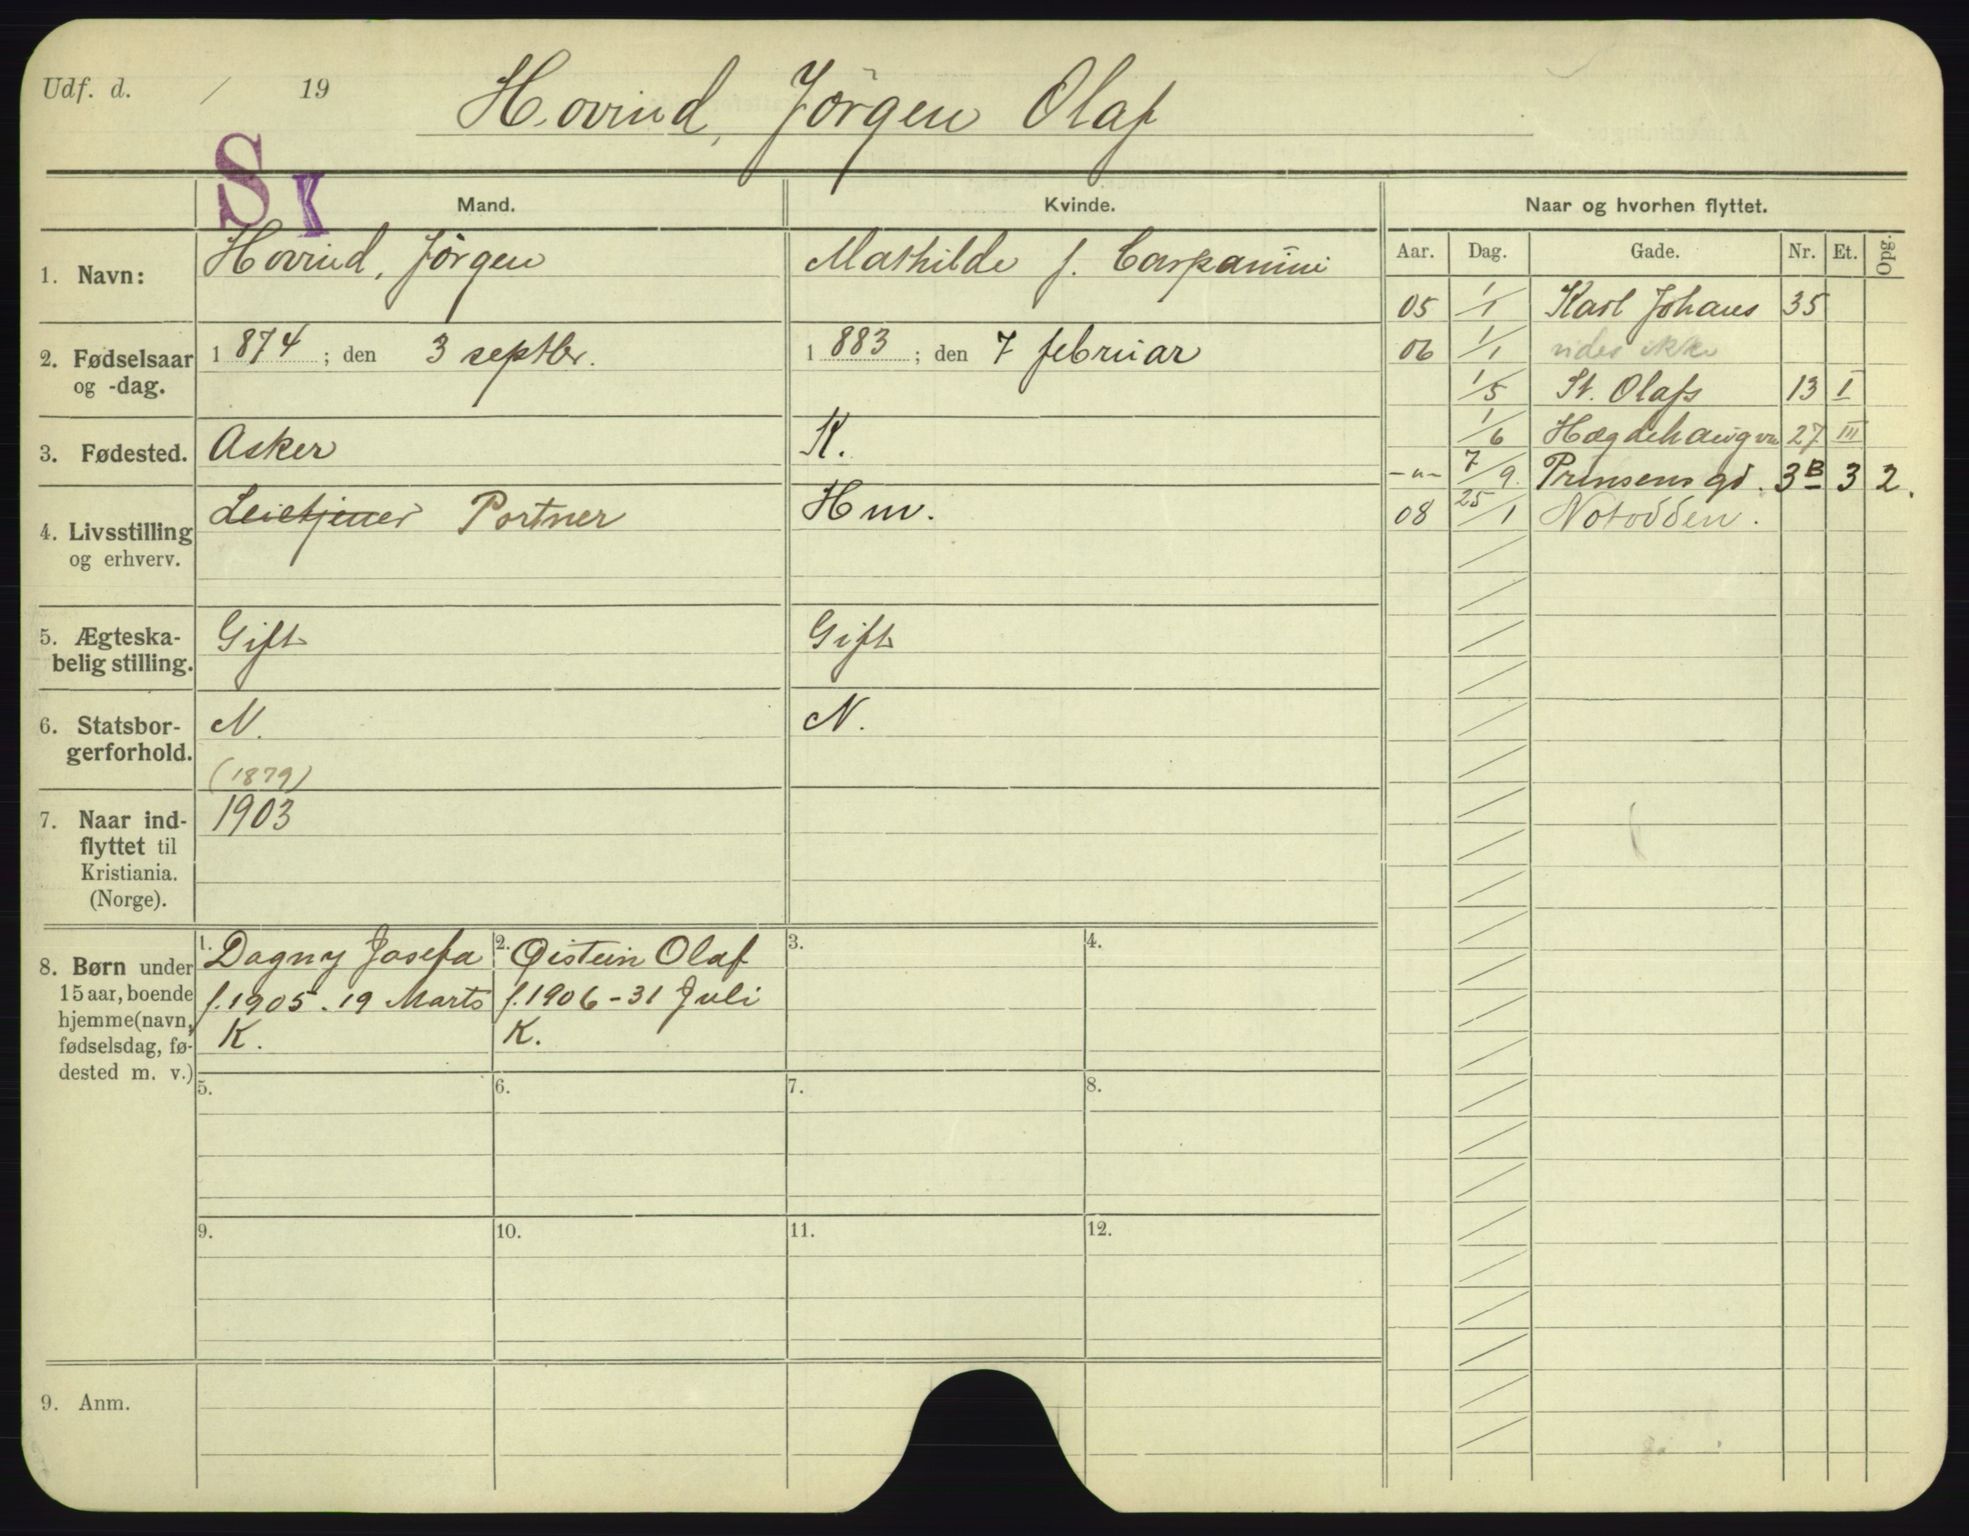 Udf. d. / 19
Hovind, Jörgen Olaf
S K
Mand.
Kvinde.
Naar og hvorhen flyttet.
Aar. Dag. Gade. Nr. Et. Opg.
1. Navn: Hovind, Jörgen
Mathilde f.
2. Fødselsaar og -dag. 1 874 ; den 3 septbr.
1 883 ; den 7 februar
3. Fødested. Asker
K.
4. Livsstilling og erhverv. Leietjener Portner
Hm.
5. Ægteskabelig stilling. Gift
Gift
6. Statsborgerforhold. N.
N.
(1879)
7. Naar indflyttet til Kristiania. (Norge). 1903
05 1/1 Karl Johans 35
06 1/1 ikke
1/5 St. Olafs 13 I
1/6 Hægdehaugvn 27 III
-"- 7/9. Prinsens gd. 3B 3 2.
08 25/1 Notodden.
8. Børn under
15 aar, boende
hjemme (navn,
fødselsdag, fø-
dested m. v.)
1. Dagny Josefa
f. 1905. 19 Marts
K.
2. Øistein Olaf
f. 1906 - 31 Juli
K.
3.
4.
5.
6.
7.
8.
9.
10.
11.
12.
9. Anm.